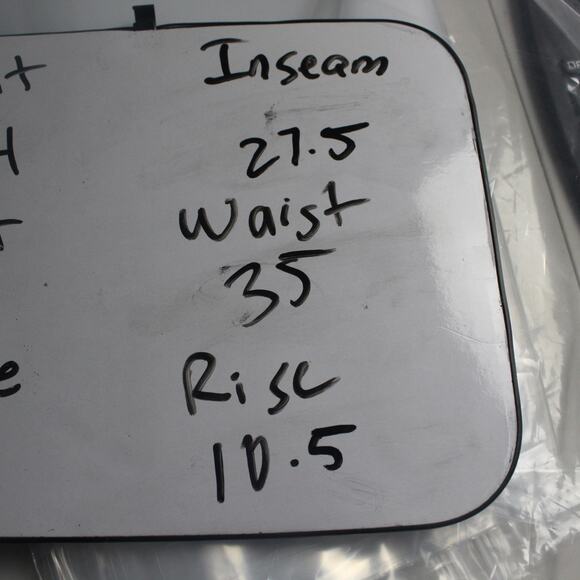 Inseam
27.5
Waist
35
Rise
10.5